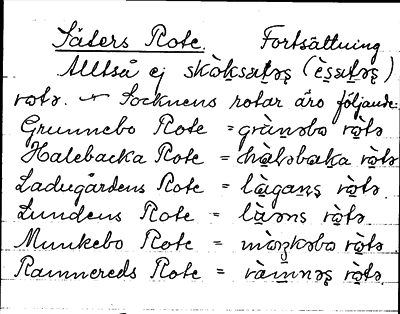 Säters Rote. Fortsättning
Alltså ej skòksatəs̩ (ès̩atəs̩)
rotə. Socknens rotar äro följande:
Grunnebo Rote = grànəbo ròtə
Halebacka Rote = hàləbaka ròtə
Ladugårdens Rote = làgans̩ ròtə.
Lundens Rote = làəns ròtə
Munkebo Rote = mòŋkəbo ròtə.
Ramnereds Rote = ràmnəs̩ ròtə.